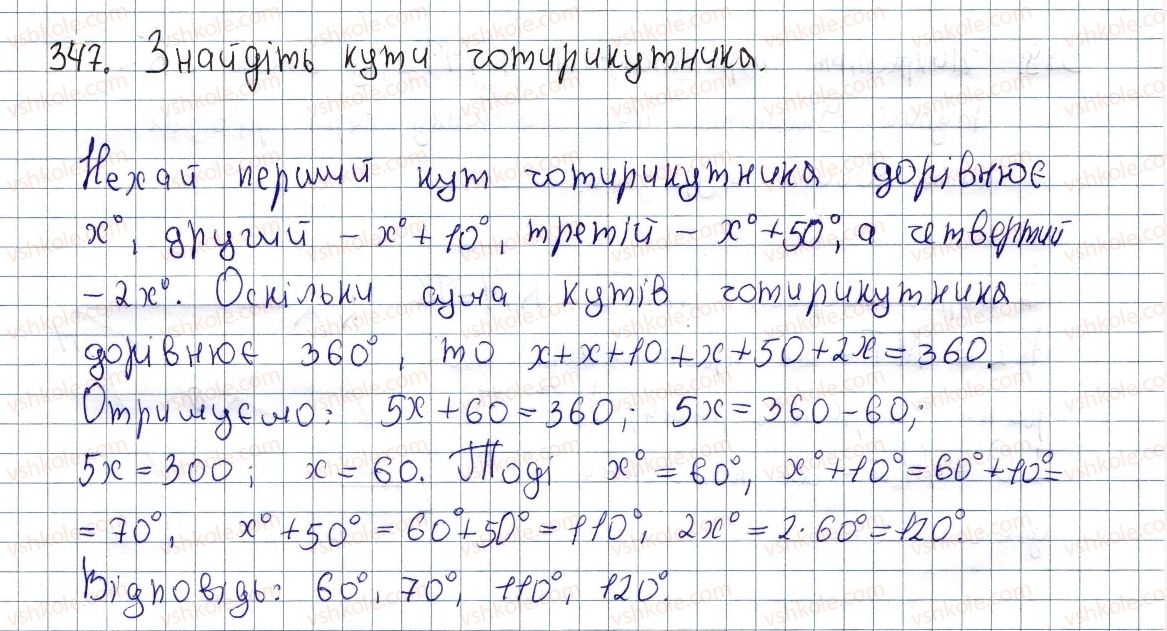 347. Знайдіть кути чотирикутника.
Нехай перший кут чотирикутника дорівнює
x°, другий – x°+10°, третій – x°+50°, а четвертий
– 2x°. Оскільки сума кутів чотирикутника
дорівнює 360°, то x+x+10+x+50+2x=360.
Отримуємо: 5x+60=360; 5x=360-60;
5x=300; x=60. Тоді x°=60°, x°+10°=60°+10°=
=70°, x°+50°=60°+50°=110°, 2x°=2·60°=120°.
Відповідь: 60°, 70°, 110°, 120°.